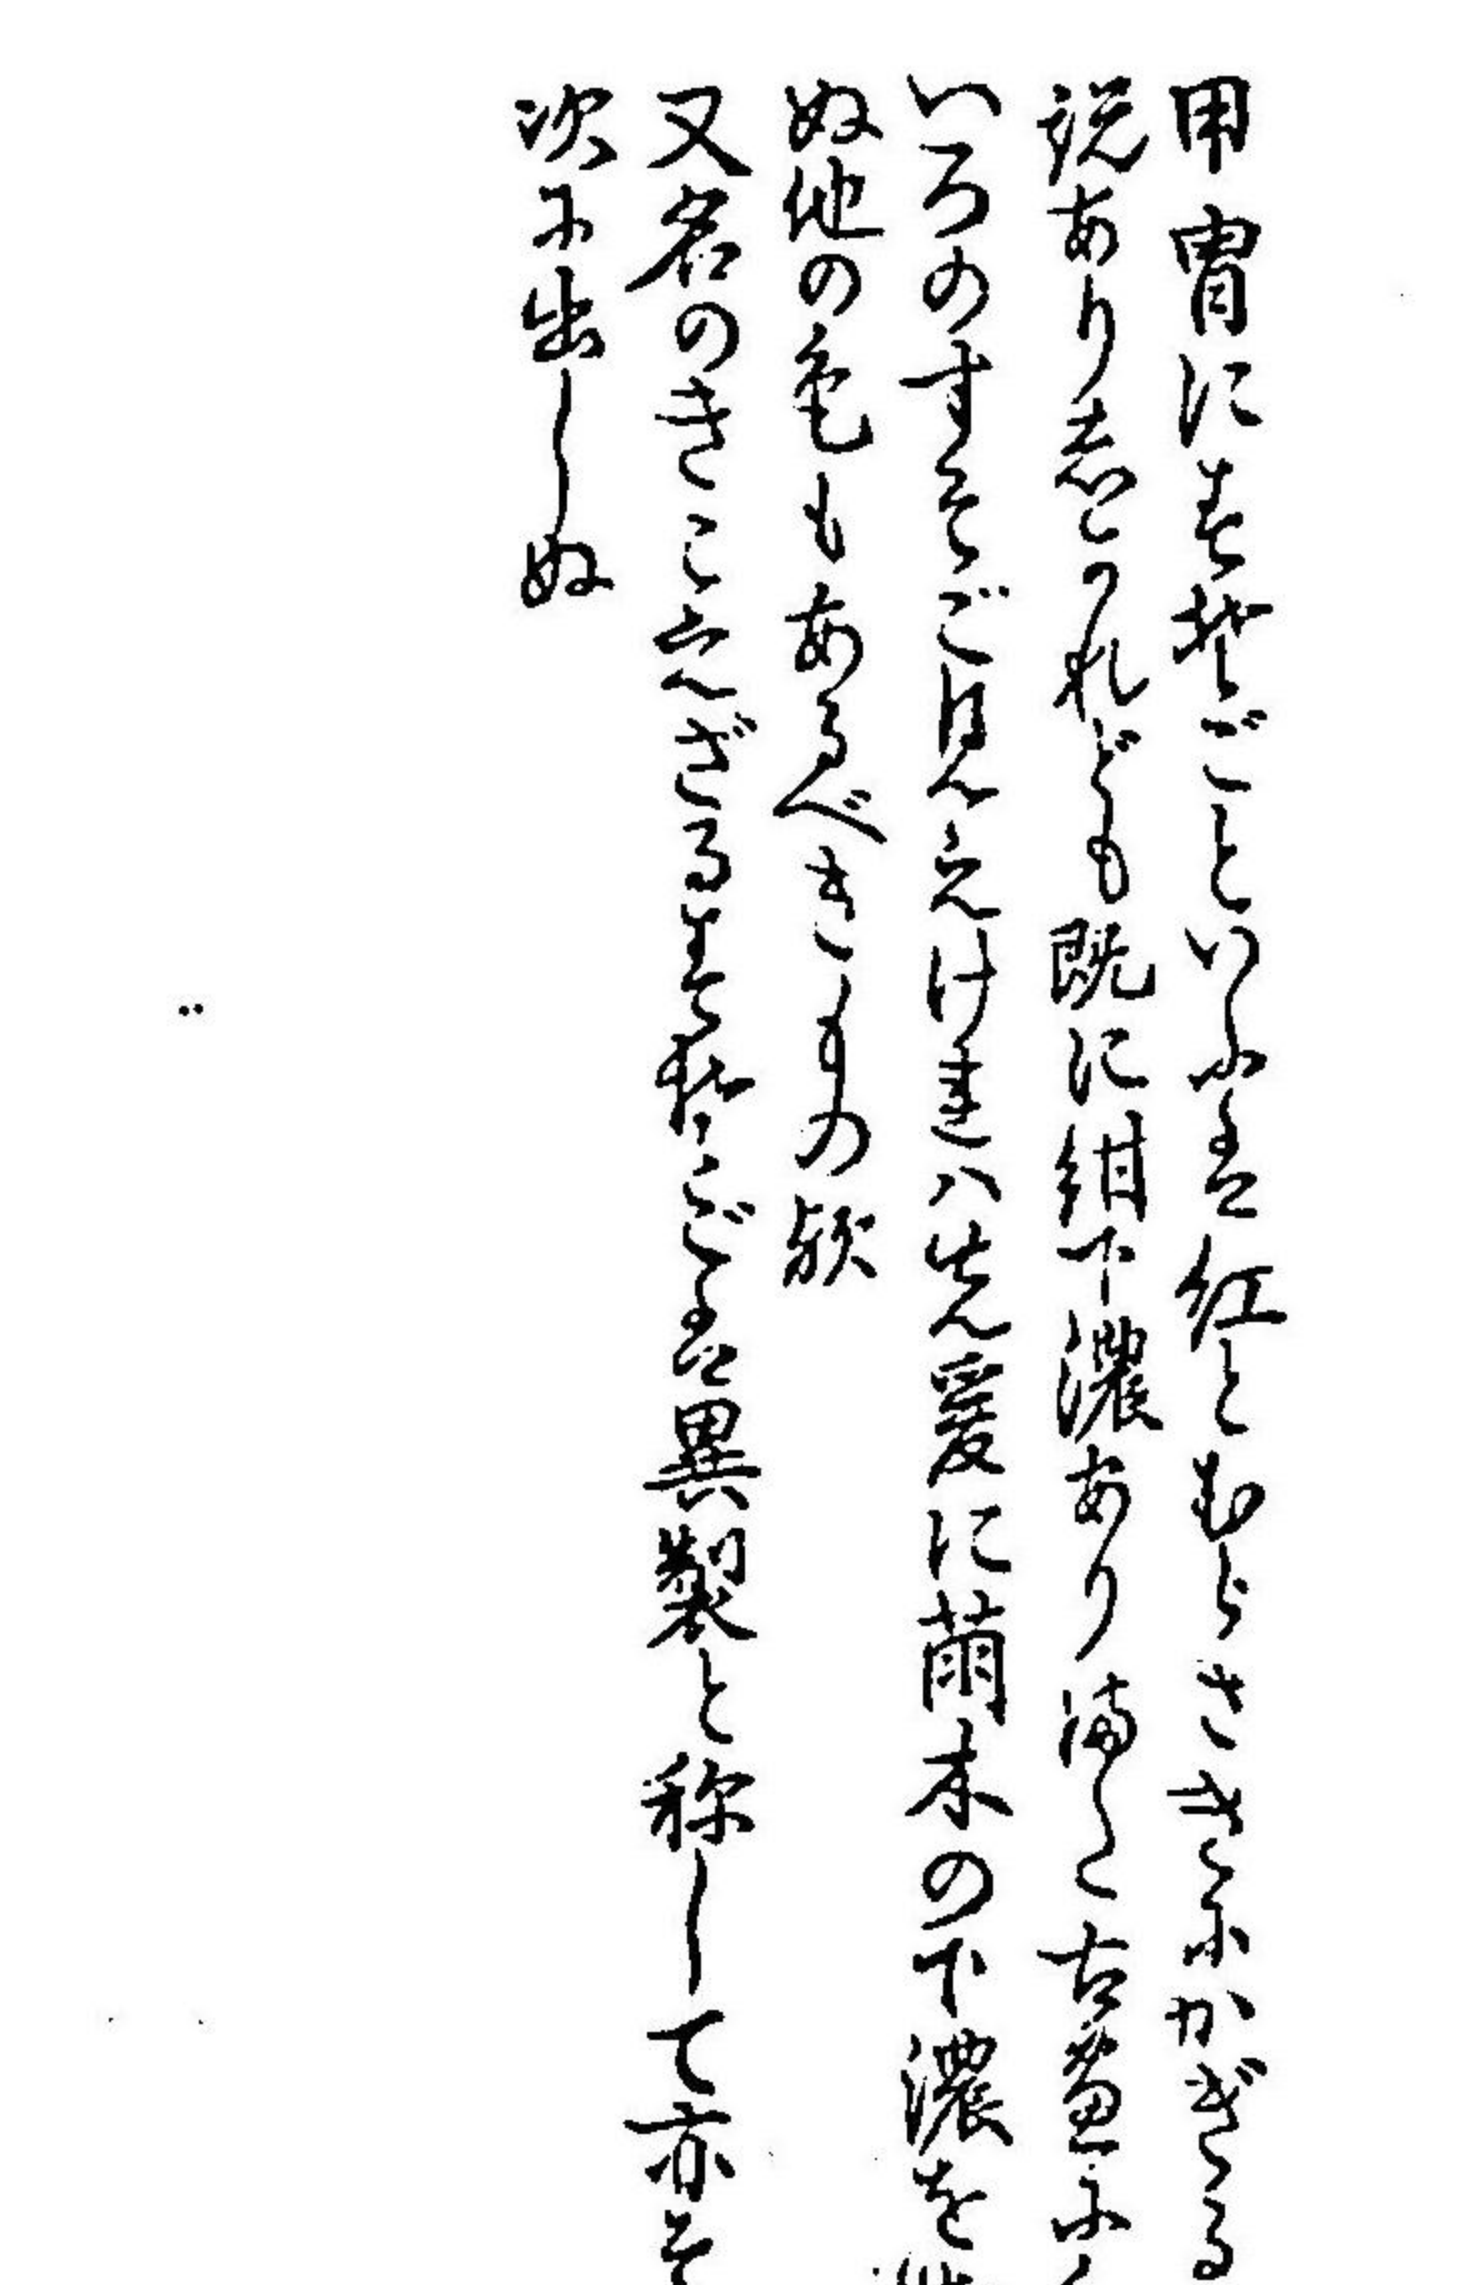 甲冑にすそごといふは紅とむらさきにかぎる
説ありしかれども既に紺下濃ありまた古畫に
いろのすそご見えけれハ先爰に萠木の下濃を
ぬ他の色もあるべきもの歟
又名のきこえざるすそごは異製と称して亦そ
次に出しぬ